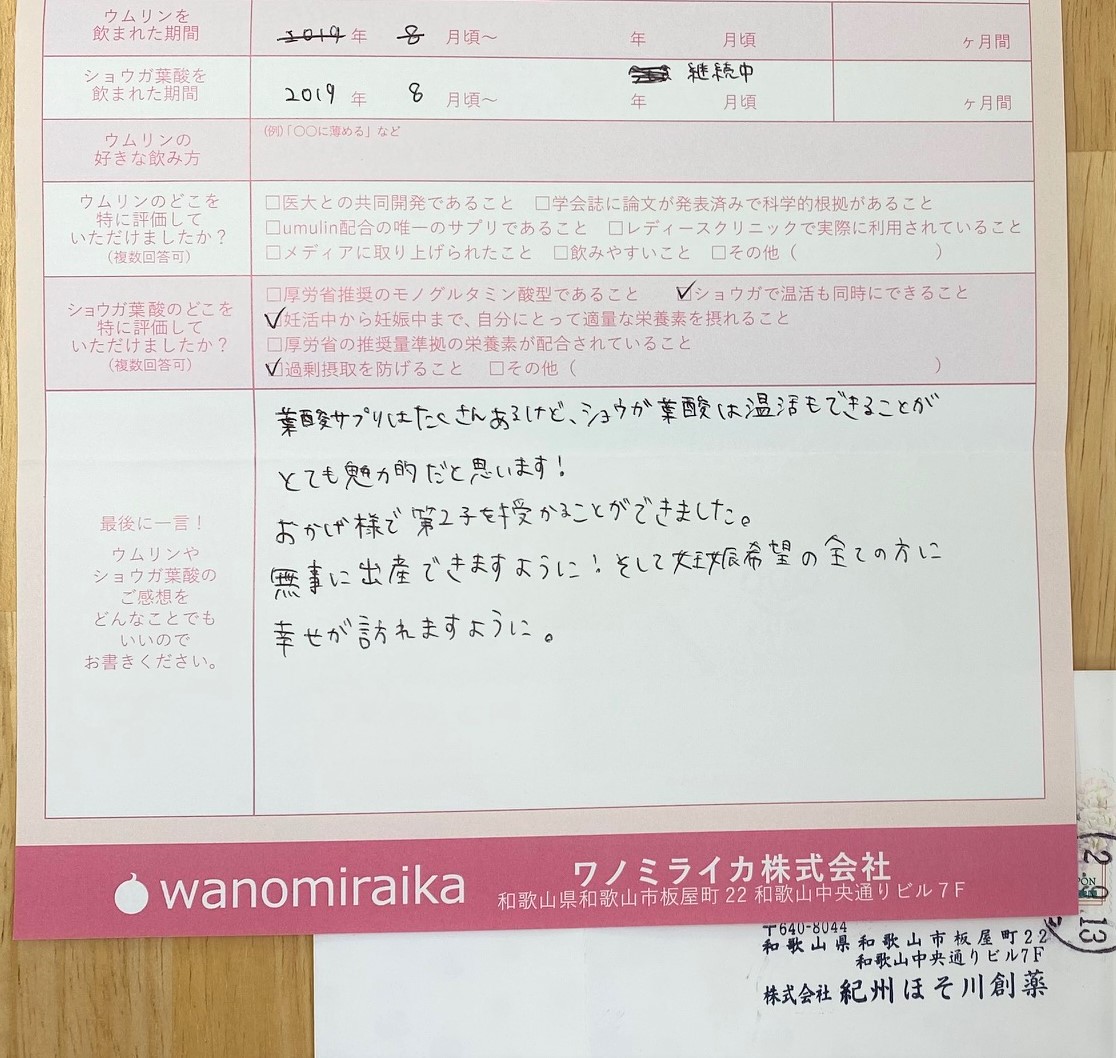 ウムリンを
飲まれた期間
2019年 8月頃～ 年 月頃 ヶ月間
ショウガ葉酸を
飲まれた期間
2019年 8月頃～ 年 月頃 継続中 ヶ月間
ウムリンの
好きな飲み方
(例)「〇〇に薄める」など
ウムリンのどこを
特に評価して
いただけましたか？
(複数回答可)
□医大との共同開発であること □学会誌に論文が発表済みで科学的根拠があること
□umulin配合の唯一のサプリであること □レディースクリニックで実際に利用されていること
□メディアに取り上げられたこと □飲みやすいこと □その他（ ）
ショウガ葉酸のどこを
特に評価して
いただけましたか？
(複数回答可)
□厚労省推奨のモノグルタミン酸型であること ☑ショウガで温活も同時にできること
☑妊活中から妊娠中まで、自分にとって適量な栄養素を摂れること
□厚労省の推奨量準拠の栄養素が配合されていること
☑過剰摂取を防げること □その他（ ）
最後に一言！
ウムリンや
ショウガ葉酸の
ご感想を
どんなことでも
いいので
お書きください。
葉酸サプリはたくさんあるけど、ショウガ葉酸は温活もできることが
とても魅力的だと思います！
おかげ様で第2子を授かることができました。
無事に出産できますように！そして妊娠希望の全ての方に
幸せが訪れますように。
wanomiraika
ワノミライカ株式会社
和歌山県和歌山市板屋町 22 和歌山中央通りビル７Ｆ
〒640-8044
和歌山県和歌山市板屋町22
和歌山中央通りビル7F
株式会社 紀州ほそ川創薬